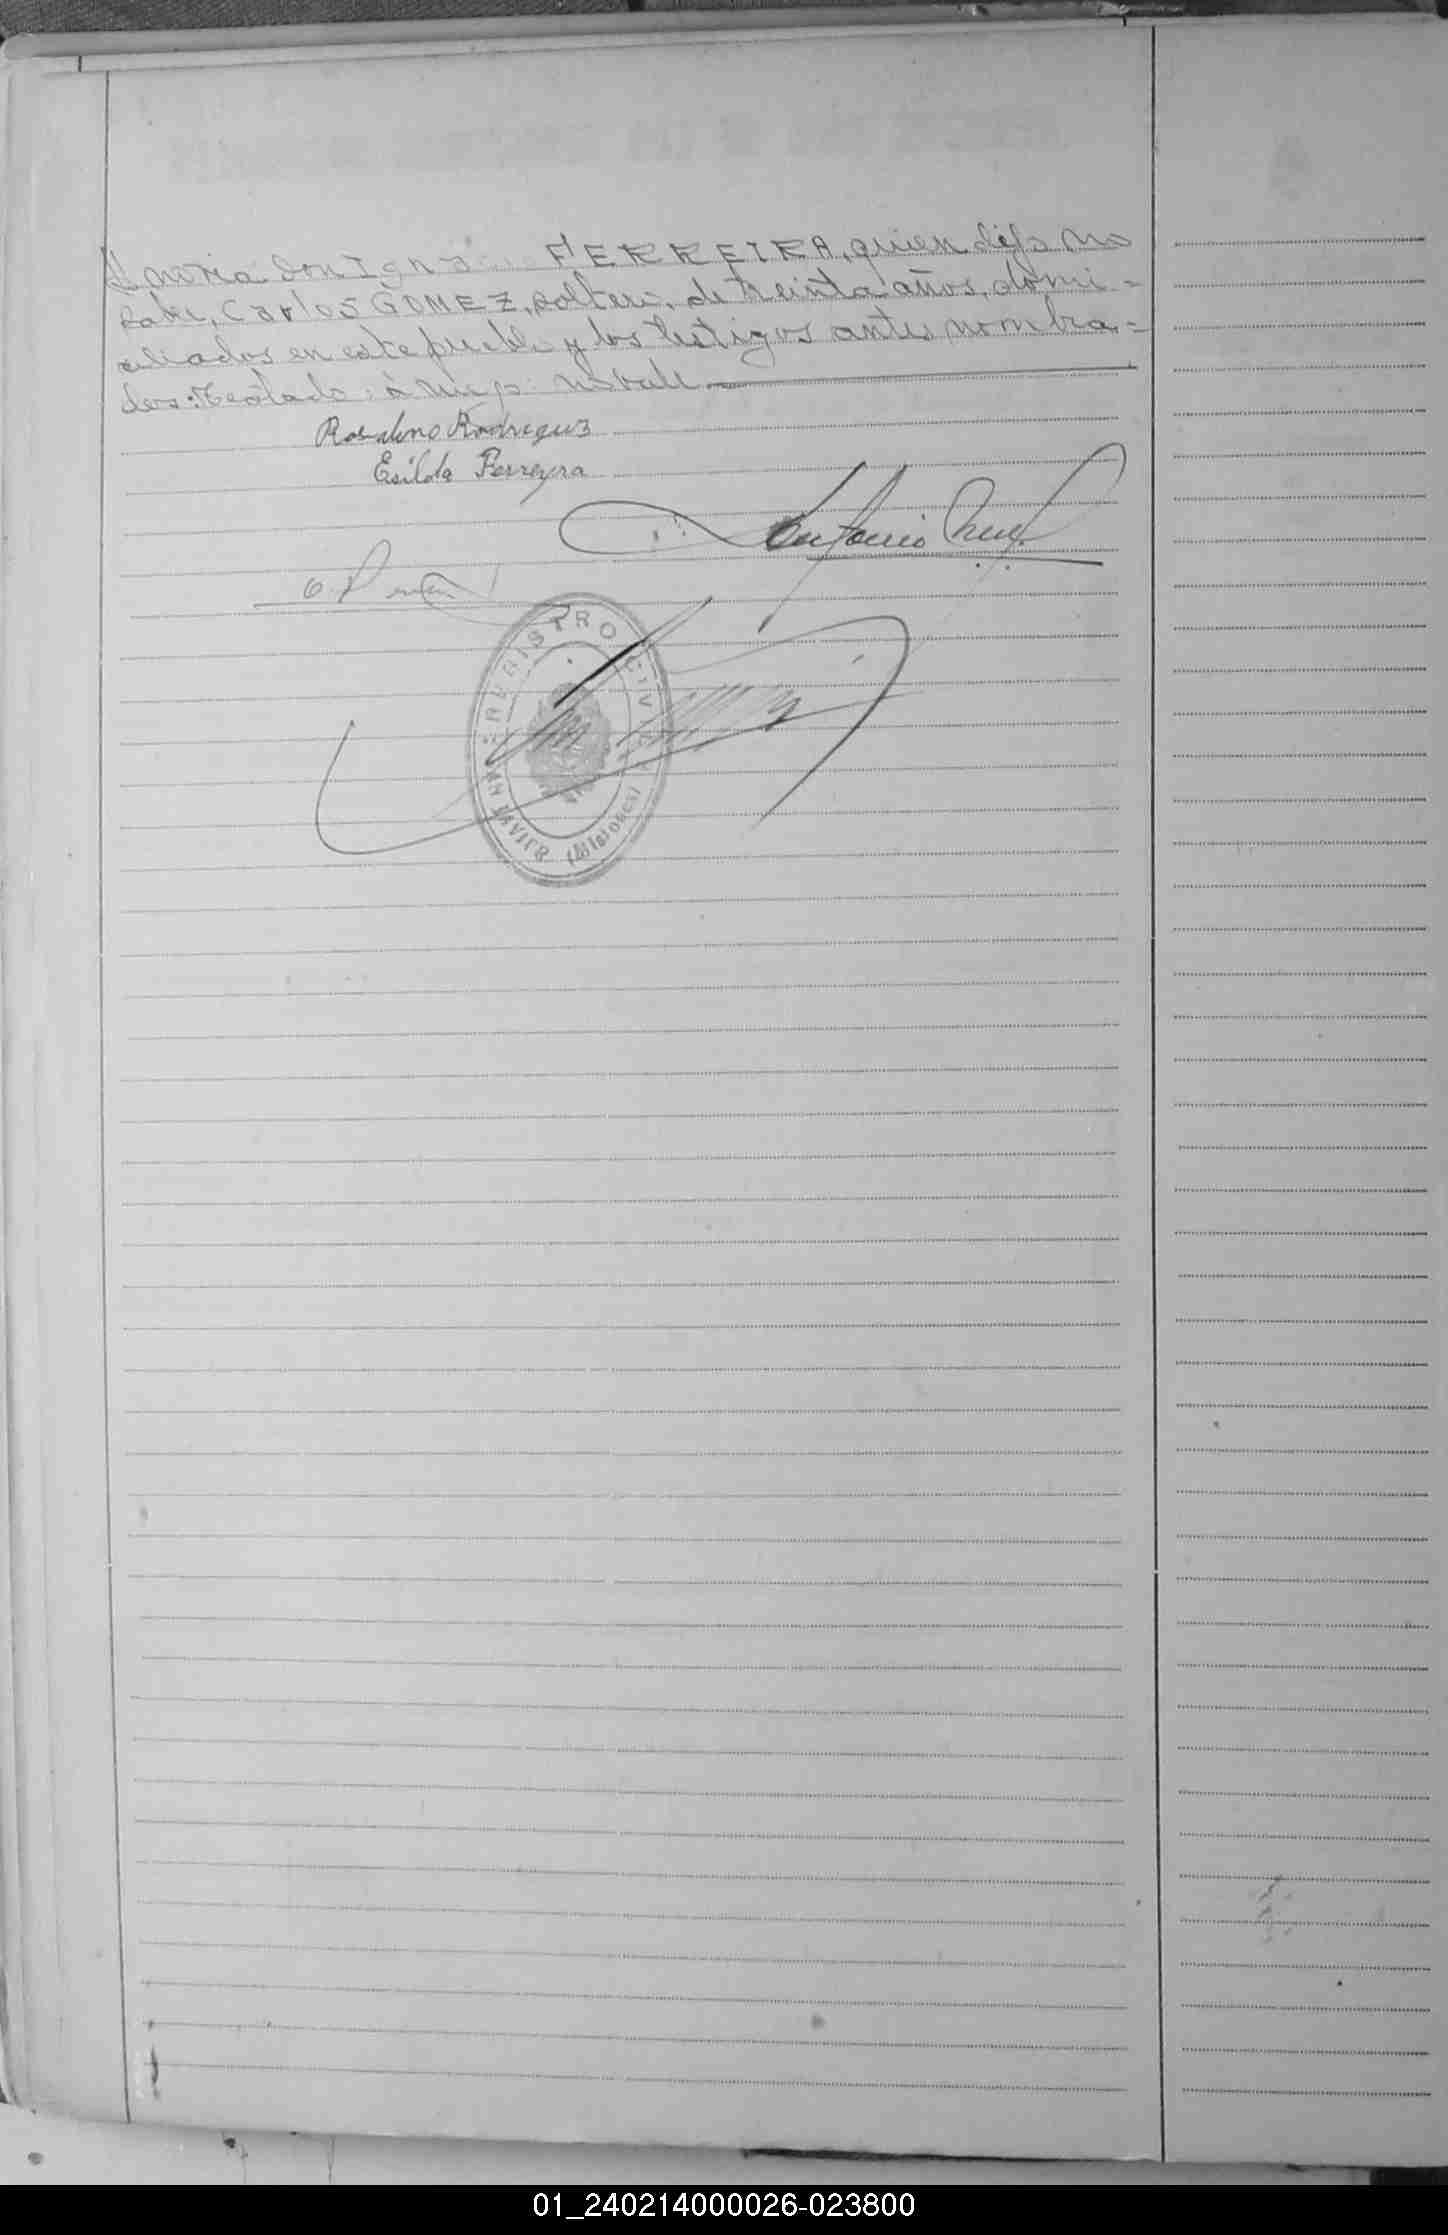 la novia don FERREIRA, quien dijo no
sabe, Carlos GOMEZ, soltero, de treinta años, domi-
ciliados en este pueblo y los testigos antes nombra-
dos. Testado: no vale
Rosalino Rodriguez
Esilda Ferreyra
Antonio
REGISTRO CIVIL
SAN JAVIER (Misiones)
01_240214000026-023800